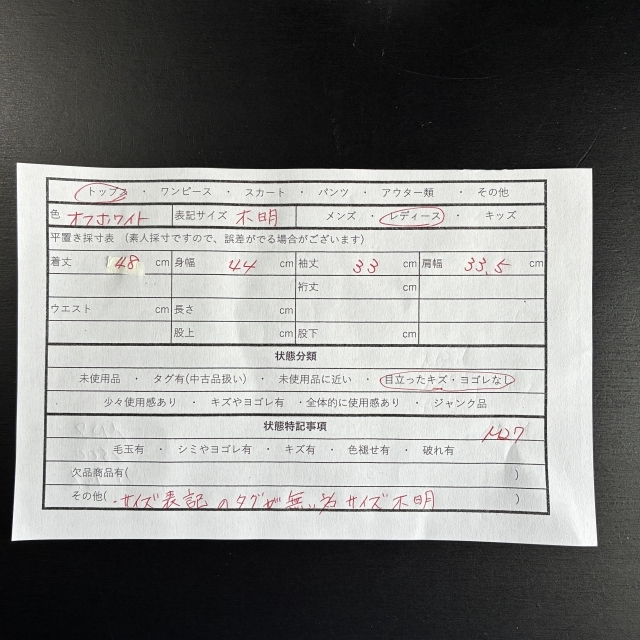 トップス ・ ワンピース ・ スカート ・ パンツ ・ アウター類 ・ その他
色 オフホワイト 表記サイズ 不明 メンズ ・ レディース ・ キッズ
平置き採寸表 (素人採寸ですので、誤差がでる場合がございます)
着丈 48 cm 身幅 44 cm 袖丈 33 cm 肩幅 33.5 cm
裄丈 cm
ウエスト cm 長さ cm
股上 cm 股下 cm
状態分類
未使用品 ・ タグ有(中古品扱い) ・ 未使用品に近い ・ 目立ったキズ・ヨゴレなし
少々使用感あり ・ キズやヨゴレ有 ・全体的に使用感あり ・ ジャンク品
状態特記事項
毛玉有 ・ シミやヨゴレ有 ・ キズ有 ・ 色褪せ有 ・ 破れ有
欠品商品有( )
その他( ・サイズ表記のタグが無い為サイズ不明 )